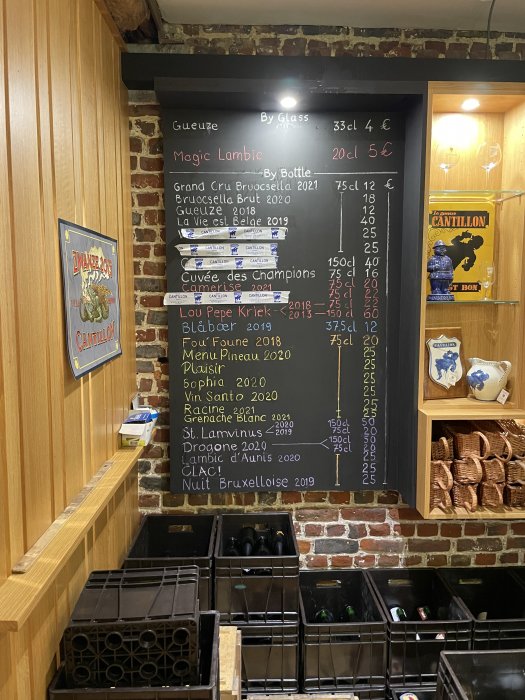 By Glass
Gueuze 33cl 4 €
Magic Lambic 20cl 5 €
By Bottle
Grand Cru Bruocsella 2021 75cl 12 €
Bruocsella Brut 2020 18
Gueuze 2018 12
La Vie est Belge 2019 40
CANTILLON CANTILLON 25
CANTILLON 25
CANTILLON 150cl 40
Cuvée des Champions 75cl 16
Camerise 2021 75cl 20
CANTILLON CANTILLON 75cl 22
Lou Pepe Kriek 2018 75cl 22
2013 150cl 60
Blåbær 2019 37.5cl 12
Fou' Foune 2018 75cl 20
Menu Pineau 2020 25
Plaisir 25
Sophia 2020 25
Vin Santo 2020 25
Racine 2021 25
Grenache Blanc 2021 25
St. Lamvinus 2020 150cl 50
2019 75cl 20
Drogone 2020 150cl 50
75cl
Lambic d'Aunis 2020 25
CLAC! 25
Nuit Bruxelloise 2019 25
CANTILLON
CANTILLON